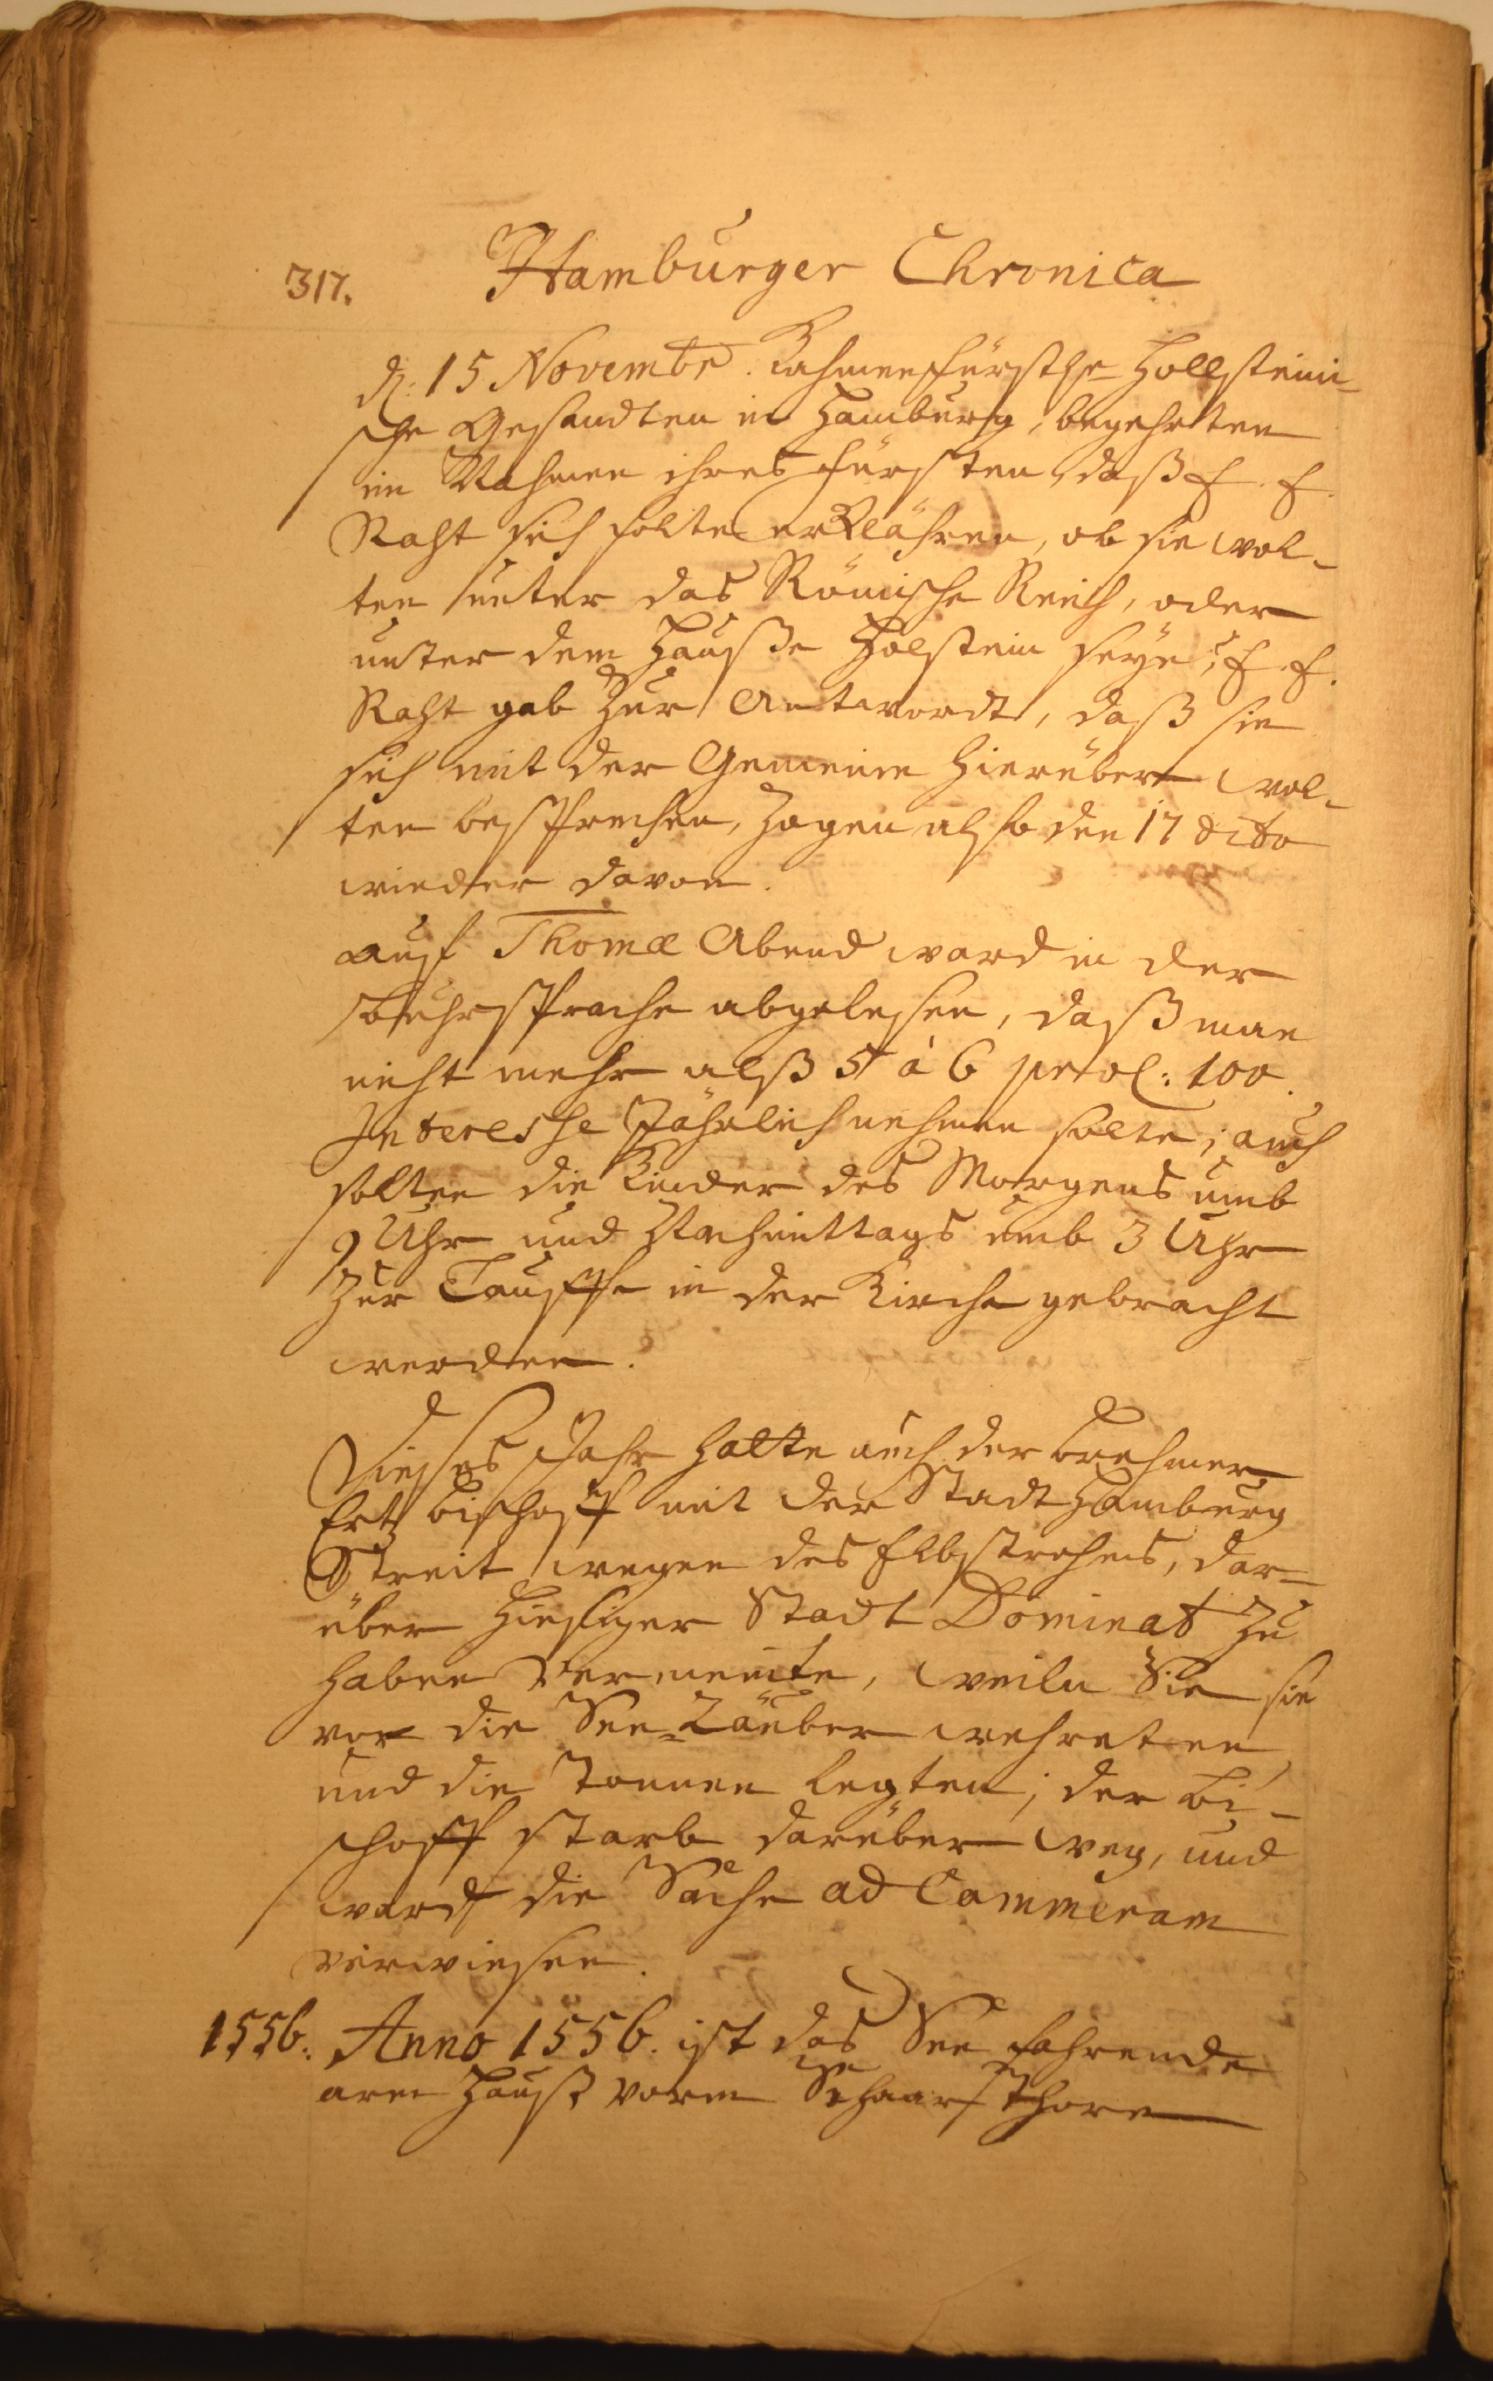 317. Hamburger Chronica
d: 15 Novembr. Kahmen fürstl. Hollsteini-
sche Gesandten in Hamburg, begehrten
im Nahmen ihres Fürsten, daß E. E.
Raht sich solte erklähren, ob sie wol-
ten unter das Römische Reich, oder
unter dem Hauße Holstein seyn; E. E.
Raht gab Zur Antwordt, daß sie
sich mit der Gemeine hierüber wol-
ten besprechen, Zogen also den 17 dito
wieder davon.
auf Thomæ Abend ward in der
Buhrsprache abgelesen, daß man
nicht mehr alß 5 à 6 100.
Interesse Jährlich nehmen solte; auch
solten die Kinder des Morgens umb
9 Uhr und Nachmittags umb 3 Uhr
Zur Tauffe in der Kirche gebracht
werden.
Dieses Jahr hatte auch der Brehmer
Ertz Bischoff mit der Stadt Hamburg
Streit wegen des Elbstrohms, dar-
über hiesiger Stadt Dominat Zu
haben vermeinte, weiln Sie sie
vor die See-Räuber wehreten
und die Tonnen legten; der Bi-
schoff starb darüber weg, und
ward die Sache ad Cammeram
verwiesen.
1556. Anno 1556. ist das See fahrende
arm Hauß vorm Schaar Thore